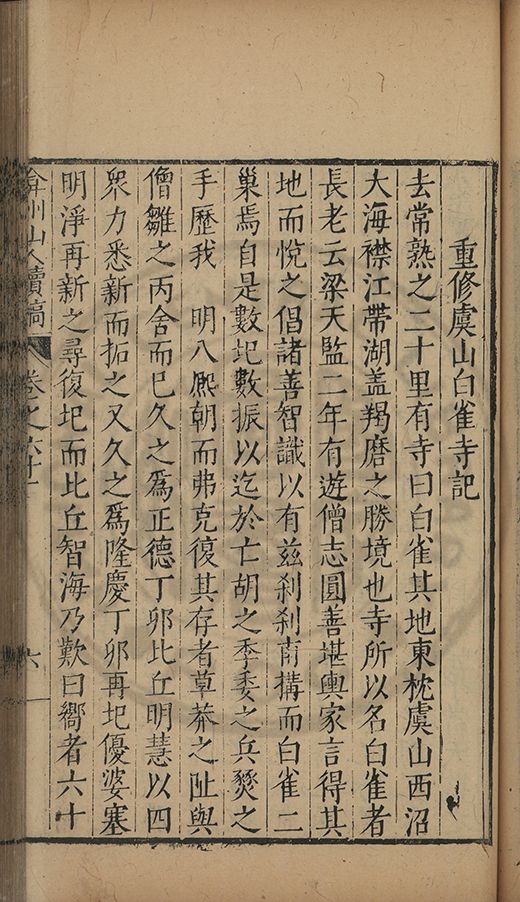 重修虞山白雀寺記
去常熟之二十里有寺曰白雀其地東枕虞山西沼
大海襟江帶湖盖羯磨之勝境也寺所以名白雀者
長老云梁天監二年有遊僧志圓善堪輿家言得其
地而悅之倡諸善智識以有兹刹刹甫搆而白雀二
巢焉自是數圯數振以迄於亡胡之季委之兵燹之
手歷我　明八熈朝而弗克復其存者草莽之阯與
僧雛之丙舍而巳久之爲正德丁卯比丘明慧以四
衆力悉新而拓之又久之爲隆慶丁卯再圯優婆塞
明淨再新之尋復圯而比丘智海乃歎曰嚮者六十
弇州山人續稿
卷之六十一
六